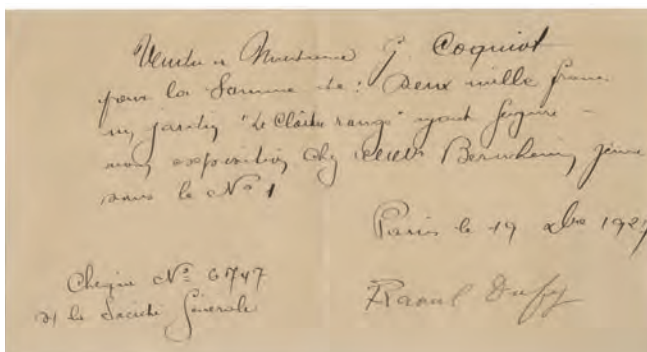 Vendu à Monsieur G. Coquiot
pour la Somme de : Deux mille francs
un jardin "Le Cloître rouge" ayant figuré
mon exposition chez Bernheim jeune
sous le Nº 1
Paris le 19
Chèque Nº 6747
s/ la Société Générale
Raoul Dufy